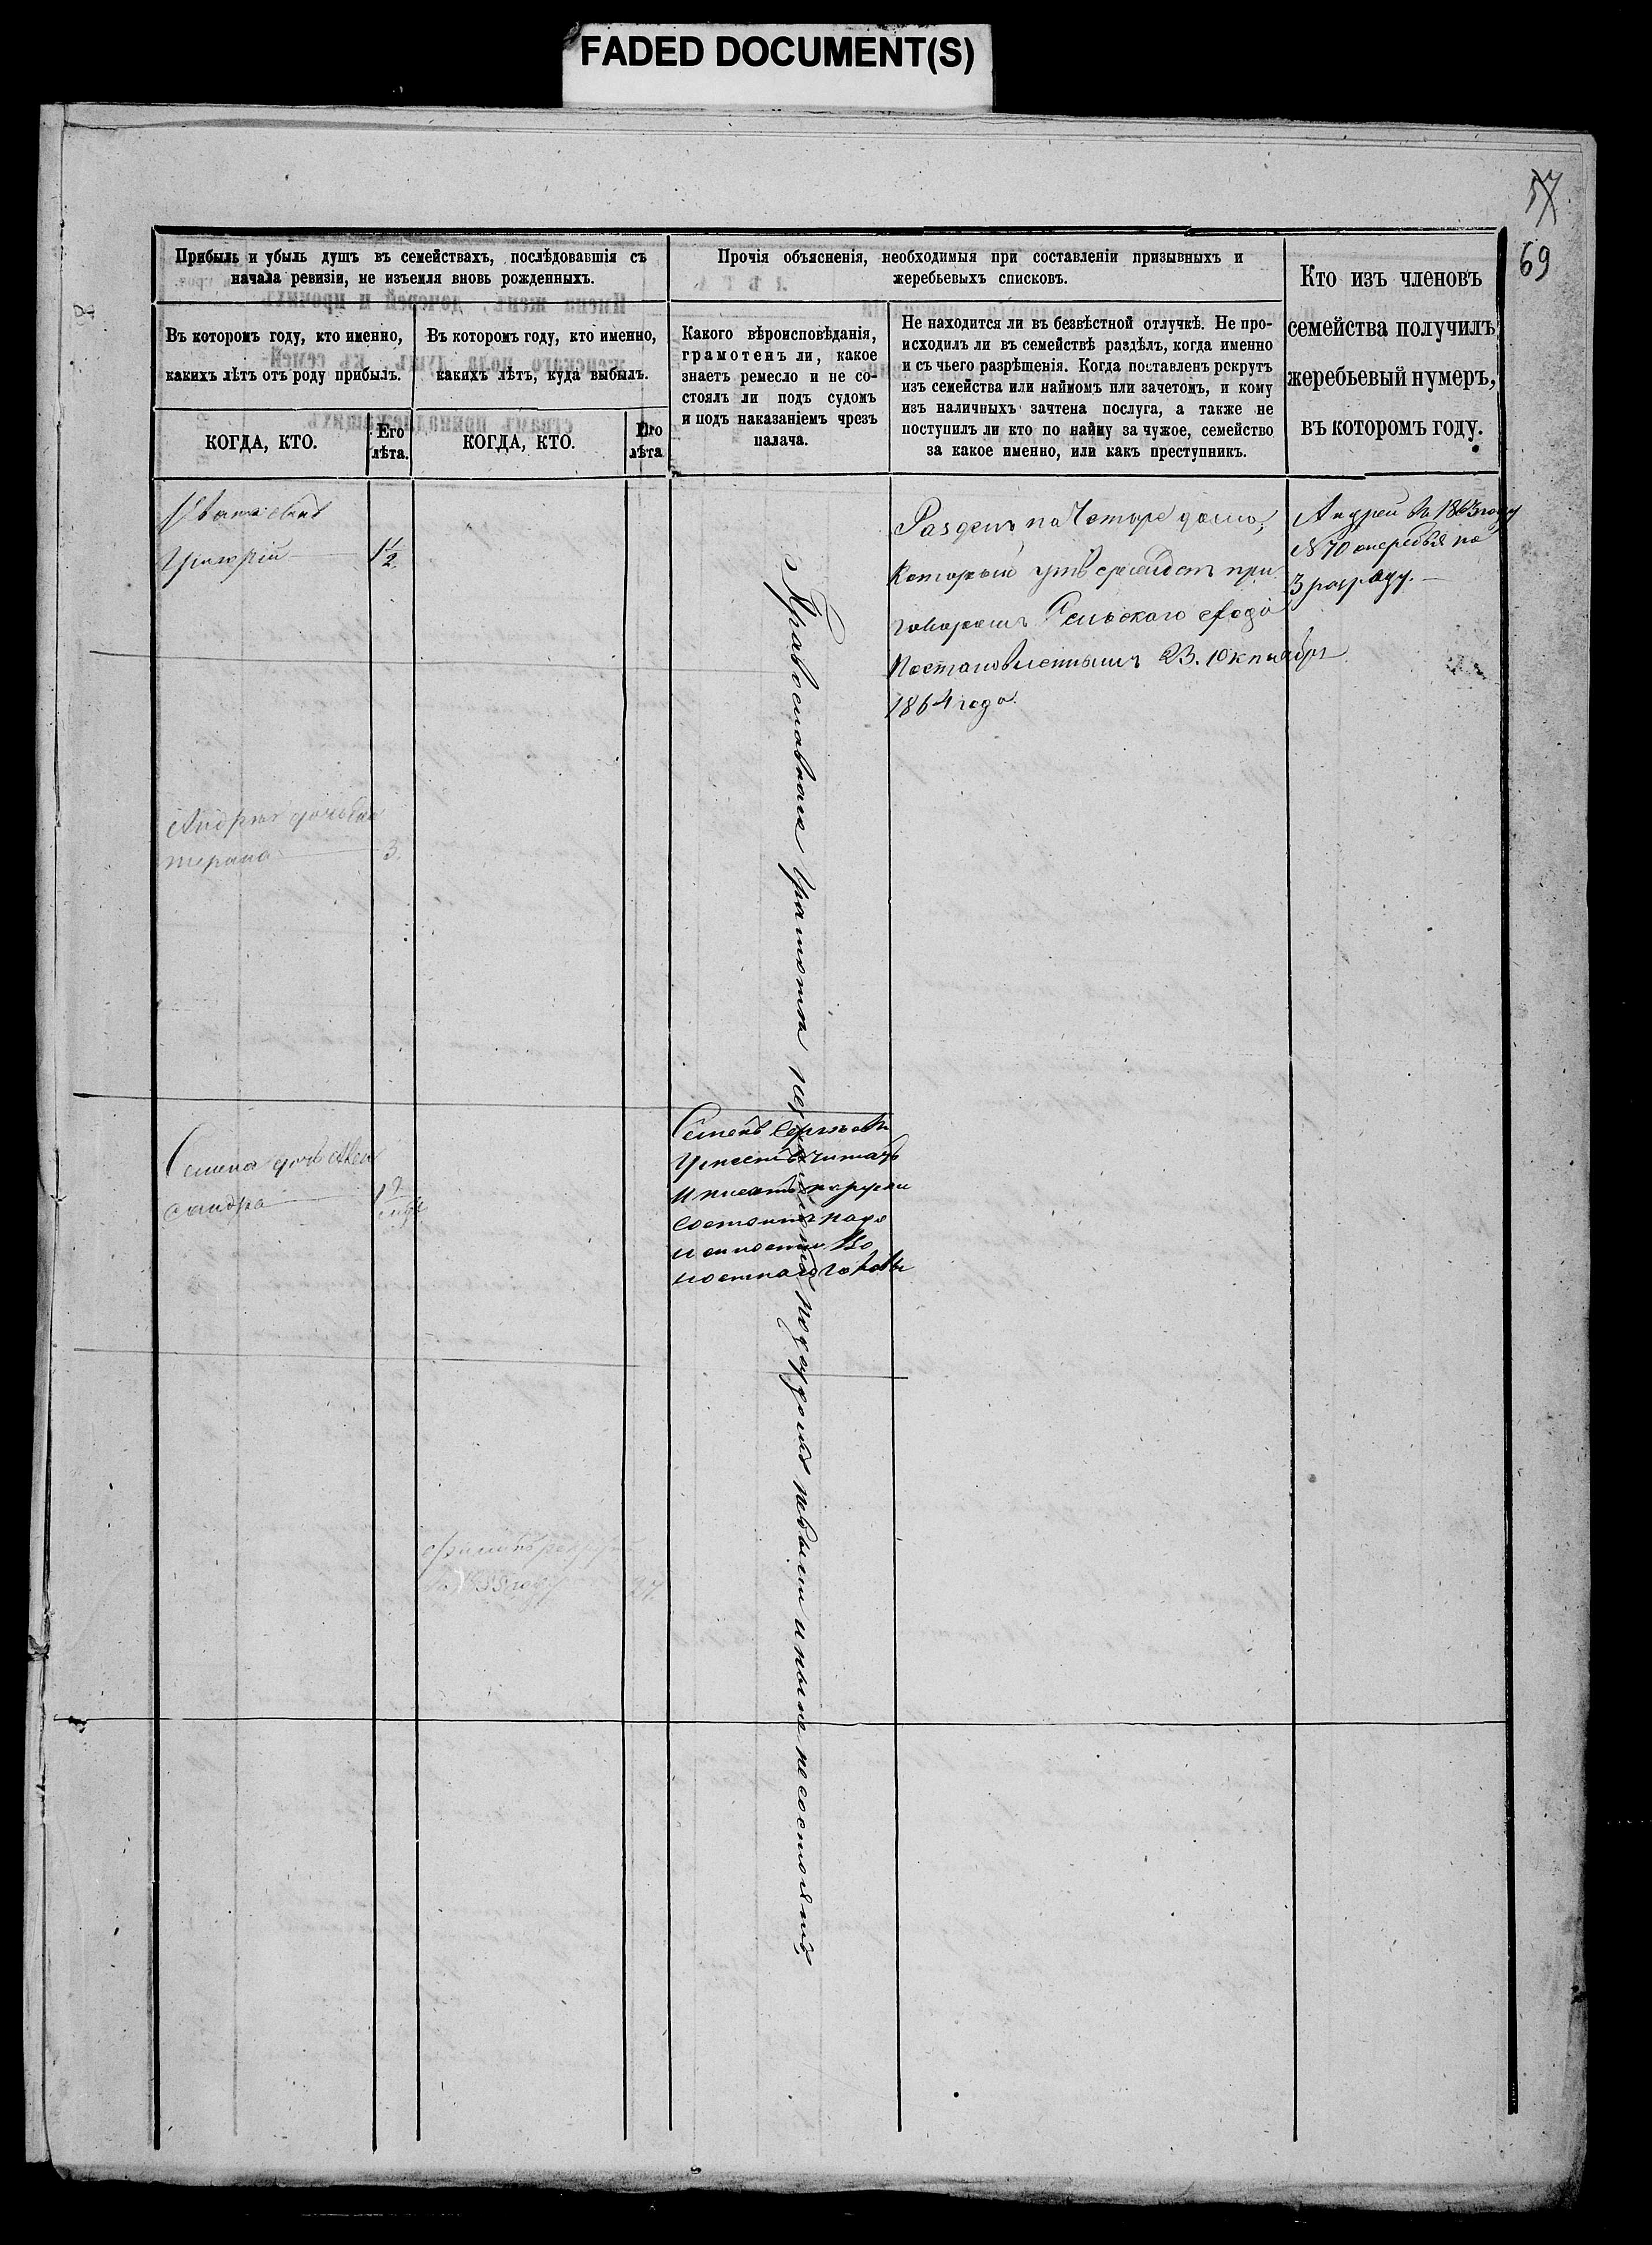 FADED DOCUMENT(S)
57
69
Прибыль и убыль душъ въ семействахъ, послѣдовавшія съ
начала ревизіи, не изъемля вновь рожденныхъ.
Прочія объясненія, необходимыя при составленіи призывныхъ и
жеребьевыхъ списковъ.
Кто изъ членовъ
семейства получилъ
жеребьевый нумеръ,
въ которомъ году.
Въ которомъ году, кто именно,
какихъ лѣтъ отъ роду прибылъ.
Въ которомъ году, кто именно,
какихъ лѣтъ, куда выбылъ.
Какого вѣроисповѣданія,
грамотенъ ли, какое
знаетъ ремесло и не со-
стоялъ ли подъ судомъ
и подъ наказаніемъ чрезъ
палача.
Не находится ли въ безвѣстной отлучкѣ. Не про-
исходилъ ли въ семействѣ раздѣлъ, когда именно
и съ чьего разрѣшенія. Когда поставленъ рекрутъ
изъ семейства или наймомъ или зачетомъ, и кому
изъ наличныхъ зачтена послуга, а также не
поступилъ ли кто по найму за чужое, семейство
за какое именно, или какъ преступникъ.
КОГДА, КТО.
Его
лѣта.
КОГДА, КТО.
Его
лѣта
Ивана сынъ
Григорій 1/2
Разделъ на Четыре дома,
Который утвержденъ при
говоромъ Сельскаго схода
Постановленнымъ 23. Октября
1864 года.
Андрей въ 1863 году
№ 70 жеребья по
3 розряду.
Андрея дочь Ека
терина 3.
Православнаго грамоты не подсудомъ небыли и ныне несостоятъ,
Семенъ Сергѣевъ
Умѣетъ читать
и писать поруски
состоитъ
Семена дочь Алек
сандра
въ 1855 году 27